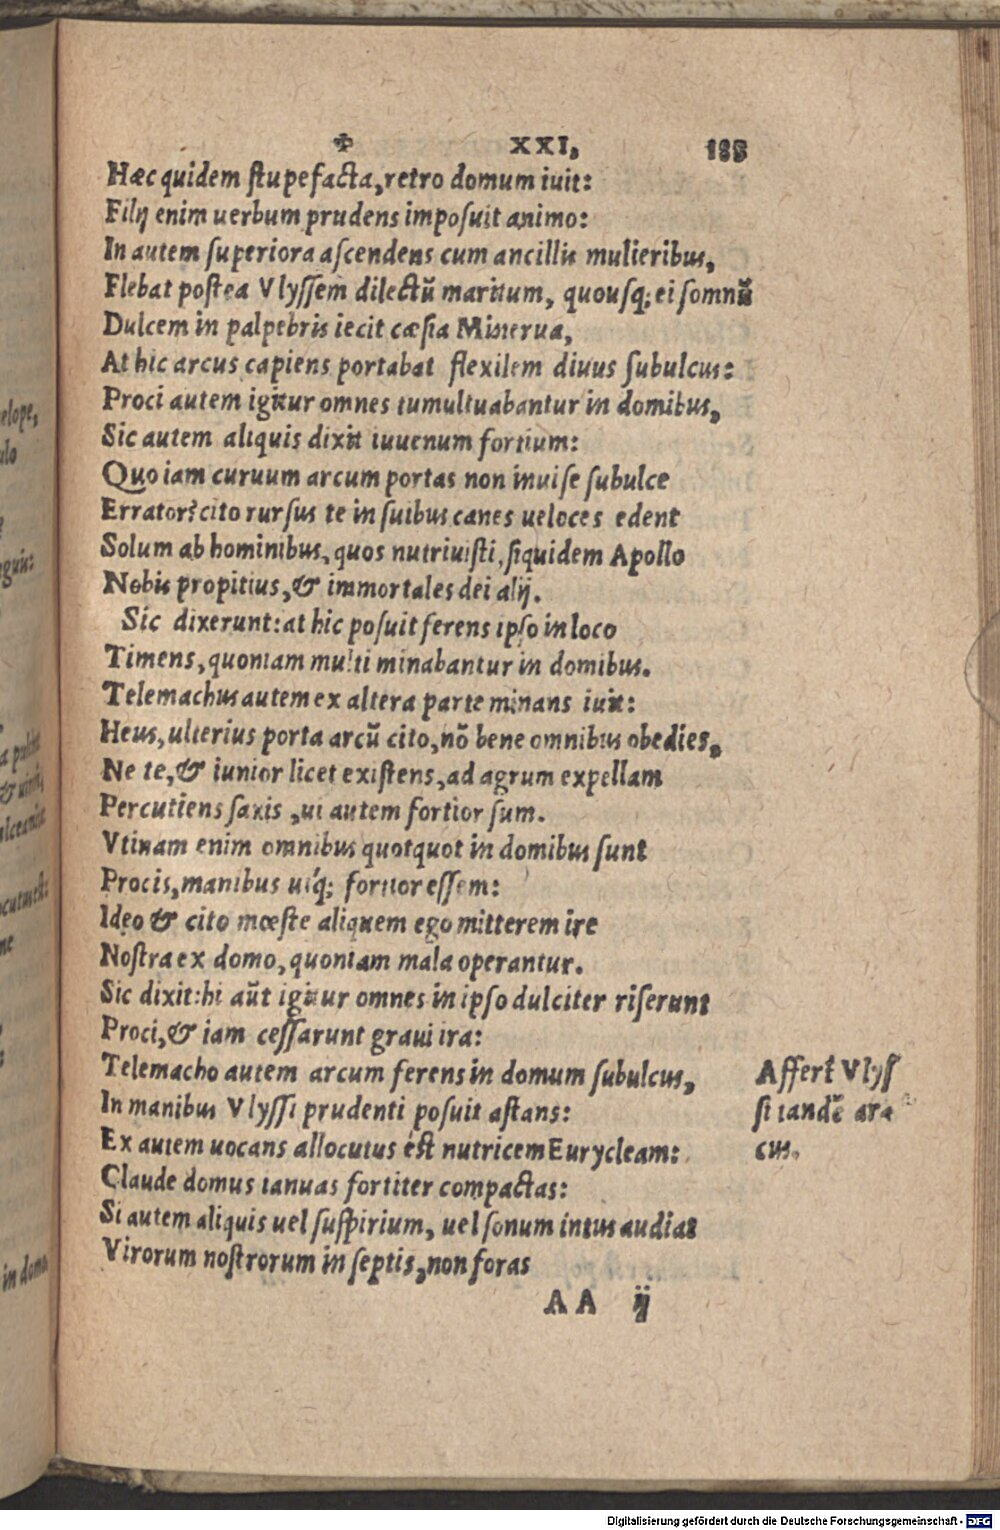 ✠ XXI, 188
Hæc quidem ſtupefacta, retro domum iuit:
Filĳ enim uerbum prudens impoſuit animo:
In autem ſuperiora aſcendens cum ancillis mulieribus,
Flebat poſtea Vlyſſem dilectũ maritum, quouſq; ei ſomnũ
Dulcem in palpebris iecit cæſia Minerua,
At hic arcus capiens portabat flexilem diuus ſubulcus:
Proci autem igitur omnes tumultuabantur in domibus,
Sic autem aliquis dixit iuuenum fortium:
Quo iam curuum arcum portas non inuiſe ſubulce
Errator? cito rurſus te in ſuibus canes ueloces edent
Solum ab hominibus, quos nutriuiſti, ſiquidem Apollo
Nobis propitius, & immortales dei alĳ.
Sic dixerunt: at hic poſuit ferens ipſo in loco
Timens, quoniam multi minabantur in domibus.
Telemachus autem ex altera parte minans iuit:
Heus, ulterius porta arcũ cito, nõ bene omnibus obedies,
Ne te, & iunior licet exiſtens, ad agrum expellam
Percutiens ſaxis, ui autem fortior ſum.
Vtinam enim omnibus quotquot in domibus ſunt
Procis, manibus uiq; fortior eſſem:
Ideo & cito mœſte aliquem ego mitterem ire
Noſtra ex domo, quoniam mala operantur.
Sic dixit: hi aũt igitur omnes in ipſo dulciter riſerunt
Proci, & iam ceſſarunt graui ira:
Telemacho autem arcum ferens in domum ſubulcus,
In manibus Vlyſſi prudenti poſuit aſtans:
Ex autem uocans allocutus eſt nutricem Eurycleam:
Claude domus ianuas fortiter compactas:
Si autem aliquis uel ſuſpirium, uel ſonum intus audiat
Virorum noſtrorum in ſeptis, non foras
AA ĳ
Affert Vlyſ
ſi tandẽ ar
cus.
elope,
ulo
guis:
a
& uiris
cutus eſt:
ne
in domo
Digitalisierung gefördert durch die Deutsche Forschungsgemeinschaft - DFG